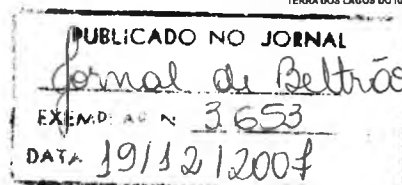 TERRA DOS LAGOS DO
PUBLICADO NO JORNAL
Jornal de Beltrão
Nº 3.653
DATA 19/12/2007